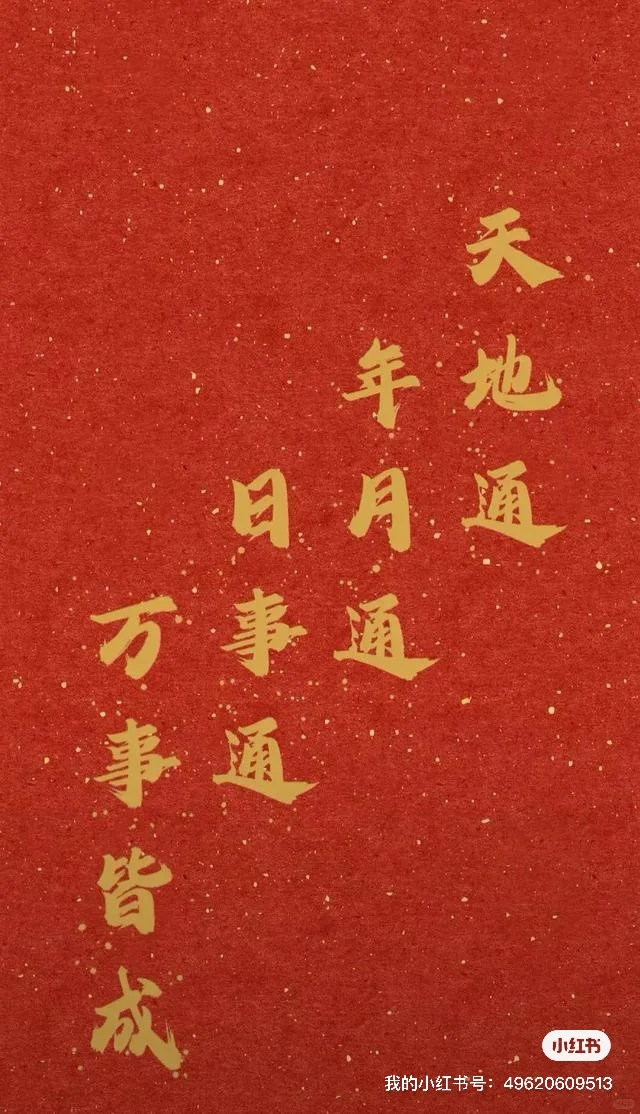 天地通
年月通
日事通
万事皆成
小红书
我的小红书号：49620609513